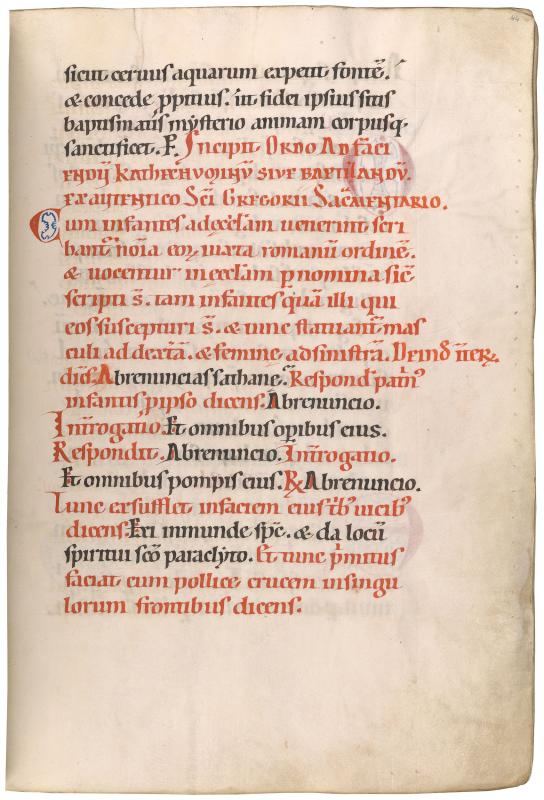 44
sicut ceruus aquarum expetit fontē.
& concede ꝓpitius. ut fidei ipsius sitis
baptismatis mysterio animam corpusq·
sanctificet. P. Incipit Ordo Ad faci
endū kathecuminū sive baptizandū.
ex autentico Sc̄i Gregorii Sacͣmentario.
Cum infantes ad ęcclam uenerint scri
bant̄ noīa eoꝝ iuxta romanū ordinē.
& uocentur in ecclam ꝑ nomina sic̄
scripti s̄. tam infantes quā illi qui
eos suscepturi s̄. & tunc statuant̄ mas
culi ad dext̄ā. & femine ad sinistrā. Deinđ
dic̄s. Abrenuncias sathane. Respond&
infantis ꝑ ipso dicens. Abrenuncio.
Int̄rogatio. Et omnibus oꝑibus eius.
Respondit. Abrenuncio. Int̄rogatio.
Et omnibus pompis eius. ℞ Abrenuncio.
Tunc exsufflet in faciem eius tͥb uicib᾿
dicens. Exi inmunde sp̄c. & da locū
spiritui sc̄o paraclyto. Et tunc pͥmitus
faciat cum pollice crucem in singu
lorum frontibus dicens.